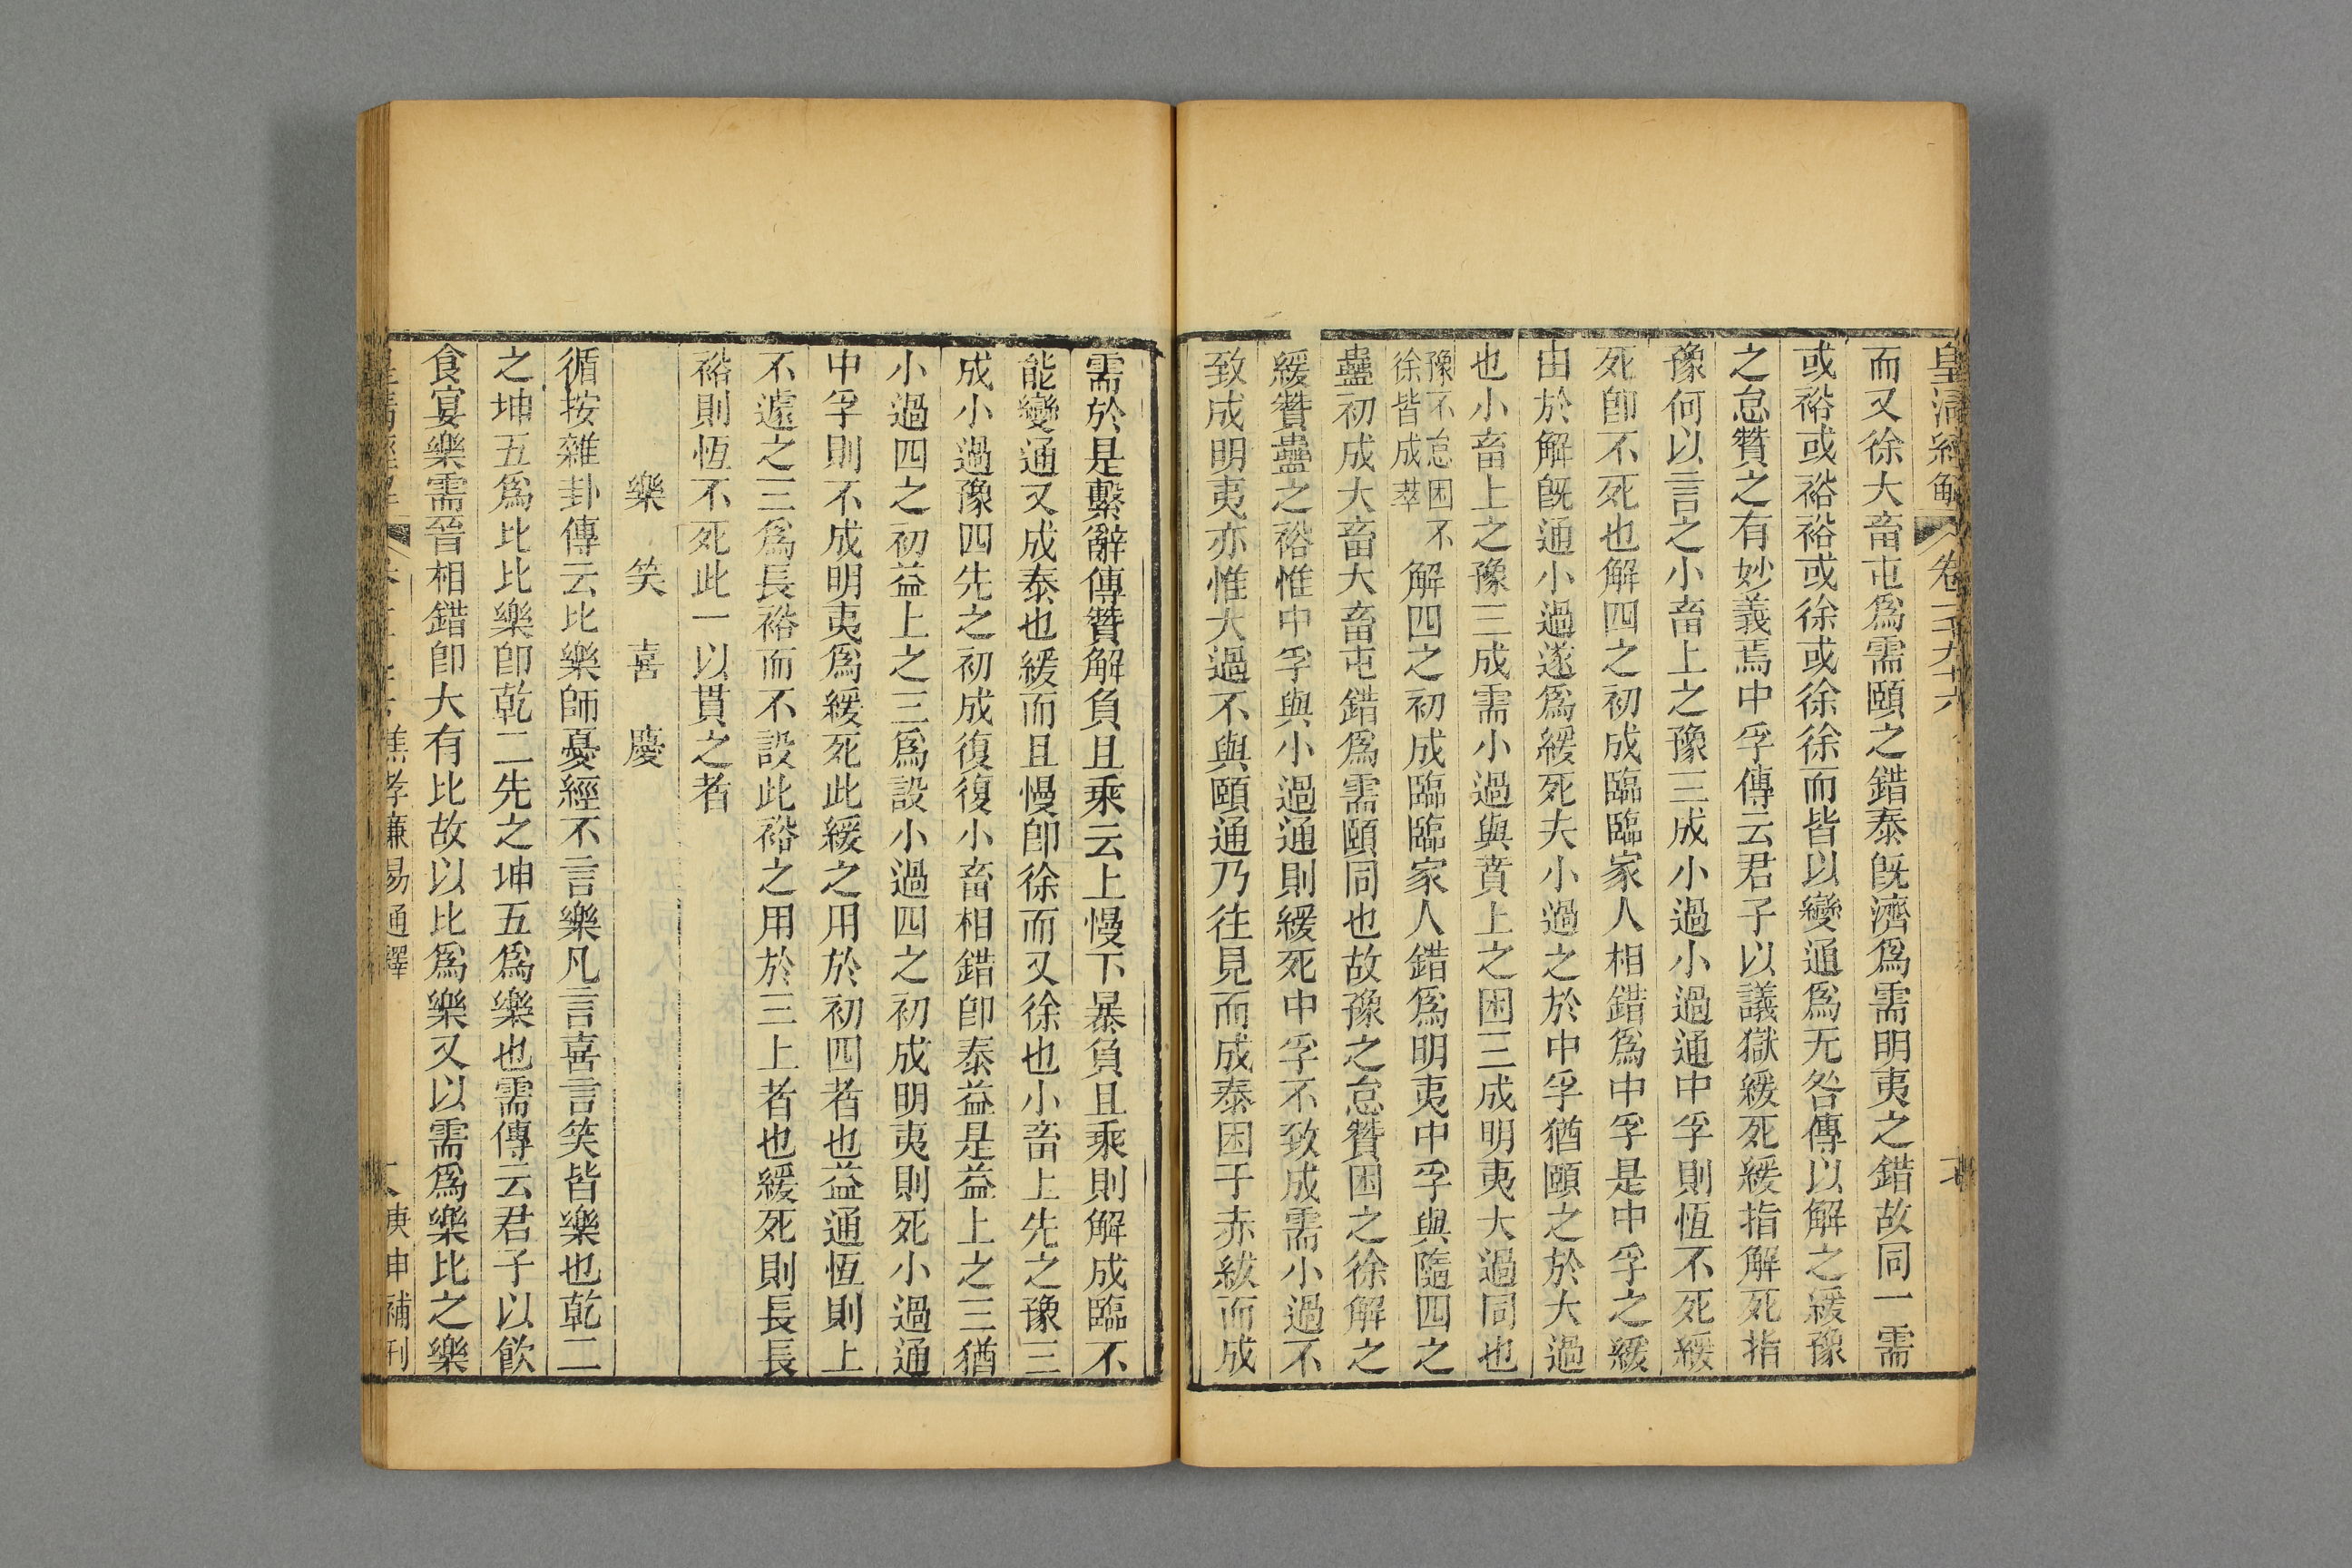 皇清經解 卷一千九十六
而又徐大畜屯爲需頤之錯泰旣濟爲需明夷之錯故同一需
或裕或裕裕或徐或徐徐而皆以變通爲无咎傳以解之緩豫
之怠贊之有妙義焉中孚傳云君子以議獄緩死緩指解死指
豫何以言之小畜上之豫三成小過小過通中孚則恆不死緩
死卽不死也解四之初成臨臨家人相錯爲中孚是中孚之緩
由於解旣通小過遂爲緩死夫小過之於中孚猶頤之於大過
也小畜上之豫三成需小過與賁上之困三成明夷大過同也
豫不怠困不
徐皆成萃
解四之初成臨臨家人錯爲明夷中孚與隨四之
蠱初成大畜大畜屯錯爲需頤同也故豫之怠贊困之徐解之
緩贊蠱之裕惟中孚與小過通則緩死中孚不致成需小過不
致成明夷亦惟大過不與頤通乃往見而成泰困于赤紱而成
需於是繫辭傳贊解負且乘云上慢下暴負且乘則解成臨不
能變通又成泰也緩而且慢卽徐而又徐也小畜上先之豫三
成小過豫四先之初成復復小畜相錯卽泰益是益上之三猶
小過四之初益上之三爲設小過四之初成明夷則死小過通
中孚則不成明夷爲緩死此緩之用於初四者也益通恆則上
不遽之三爲長裕而不設此裕之用於三上者也緩死則長長
裕則恆不死此一以貫之者
樂 笑 喜 慶
循按雜卦傳云比樂師憂經不言樂凡言喜言笑皆樂也乾二
之坤五爲比比樂卽乾二先之坤五爲樂也需傳云君子以飮
食宴樂需晉相錯卽大有比故以比爲樂又以需爲樂比之樂
焦孝廉易通釋 庚申補刊